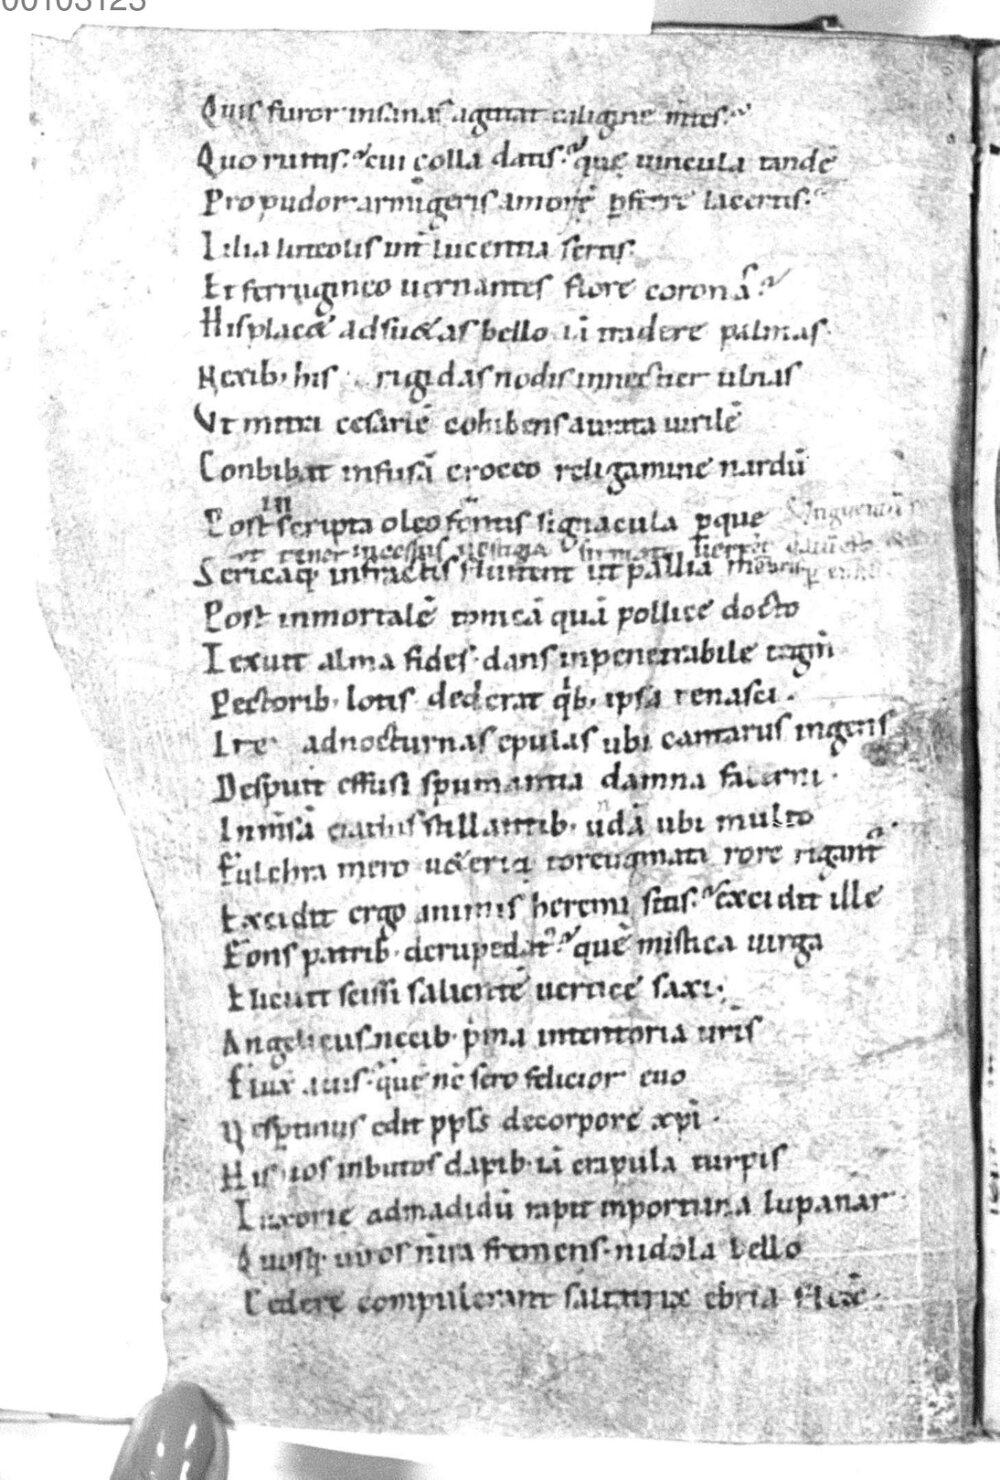 00103123
Quis furor insanas agitat caligine m̄tes.
Quo ruitis. cui colla datis. que uincula tandē
Pro pudor armigeris amor ē p̄ferre lacertis.
Lilia luteolis int̄ lucentia sertis.
Et ferrugineo uernantes flore coronas.
His placet adsuetas bello iā tradere palmas.
Nexib; his rigidas nodis innectier ulnas
Vt mitra cesariē cohibens aurata uirilē
Conbibat infusā croceo religamine nardū
Post inscripta oleo frontis signacula p que
Sericaq; infractis fluitent ut pallia
Post inmortalē tonicā quā pollice docto
Texuit alma fides. dans inpenetrabile tegm̄
Pectorib; lotis dederat q̇b; ipsa renasci.
Ite ad nocturnas epulas ubi cantarus ingens
Despuit effusi spumantia damna falerni.
In m̄sā ciatis stillantib; uda ubi multo
Fulchra mero ueteriq; toreumata rore rigant̄
Excidit ergo animis heremi sitis. excidit ille
Fons patrib; de rupe dat̄. quē mistica uirga
Elicuit scissi salientē uertice saxi.
Angelicus necib; p̄ma in tentoria ur̄is
Fluxit auis. quē nc̄ sero felicior euo
Vespertinus edit pp̄ls de corpore xp̄i.
His uos inbutos dapib; iā crapula turpis
Luxorie ad madidū rapit inportuna lupanar.
Quosq; uiros n̄ ira fremens. n idola bello
Cedere compulerant saltatrix ebria flexit.